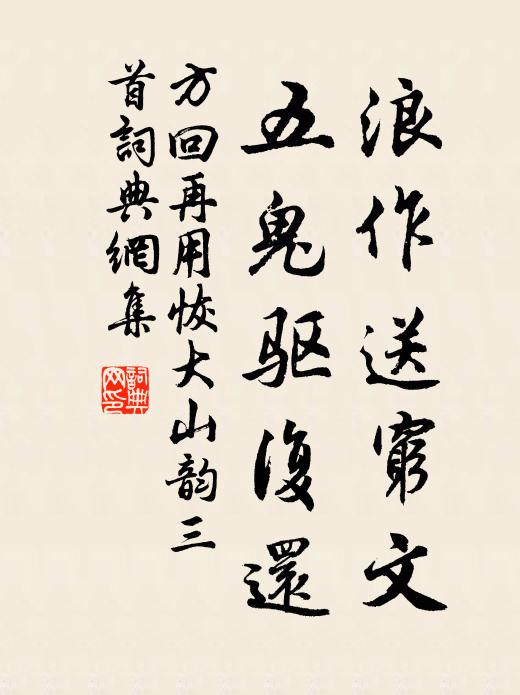 浪作送窮文
五鬼驱復還
方回再用恢大山韵三
首詞典網集
詞典網印